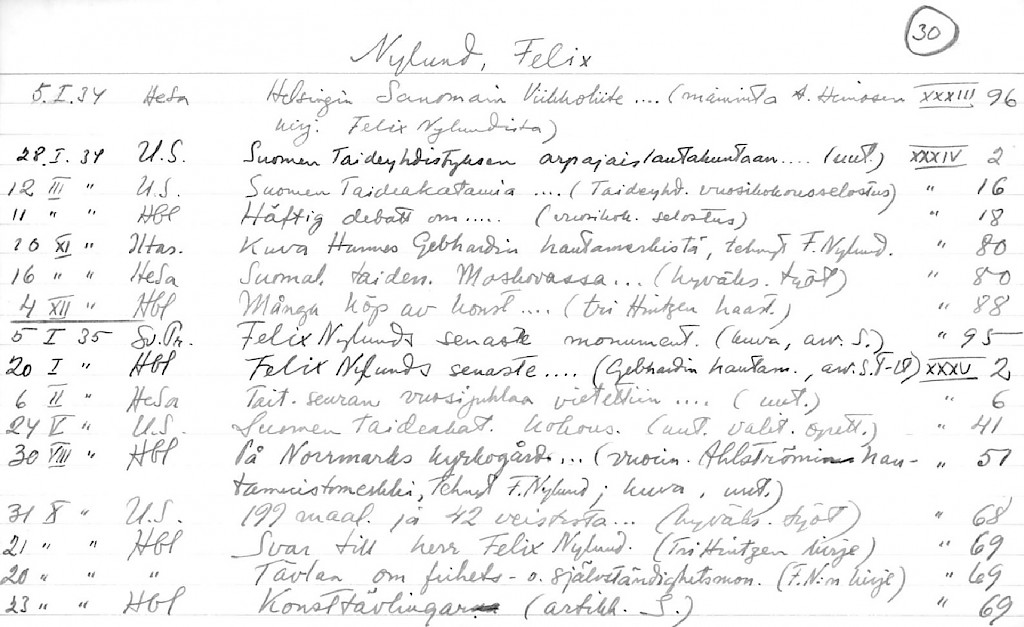 30
Nylund, Felix
5.I.34 HeSa Helsingin Sanomain Viikkoliite .... (maininta A. Heinosen XXXIII 96
kirj. Felix Nylundista)
28.I.34 U.S. Suomen Taideyhdistyksen arpajaislautakuntaan.... (uut.) XXXIV 2
12 III " U.S. Suomen Taideakatamia .... (Taideyhd. vuosikokousselostus) " 16
11 " " Hbl Häftig debatt om..... (vuosikok. selostus) " 18
10 XI " Iltas. Kuva Hannes Gebhardin hautamerkistä, tehnyt F. Nylund. " 80
16 " " HeSa Suomal. taiden. Moskovassa... (hyväks. työt) " 80
4 XII " Hbl Många köp av konst .... (tri Hintzen haast.) " 88
5 I 35 Sv.Pr. Felix Nylunds senaste monument. (kuva, arv. S.) " 95
20 I " Hbl Felix Nylunds senaste .... (Gebhardin hautam., arv. S.T-ll) XXXV 2
6 II " HeSa Tait. seuran vuosijuhlaa vietettiin .... (uut.) " 6
24 V " U.S. Suomen Taideakat. kokous. (uut. valit. opett.) " 41
30 VIII " Hbl På Norrmarks kyrkogård... (vuorin. Ahlströmin hau- " 51
tamuistomerkki, tehnyt F. Nylund; kuva, uut.)
31 X " U.S. 199 maal. ja 42 veistosta... (hyväks. työt) " 68
21 " " Hbl Svar till herr Felix Nylund. (Tri Hintzen kirje) " 69
20 " " " Tävlan om frihets- o. självständighetsmon. (F.N:n kirje) " 69
23 " " Hbl Konsttävlingar (artikk. S.) " 69